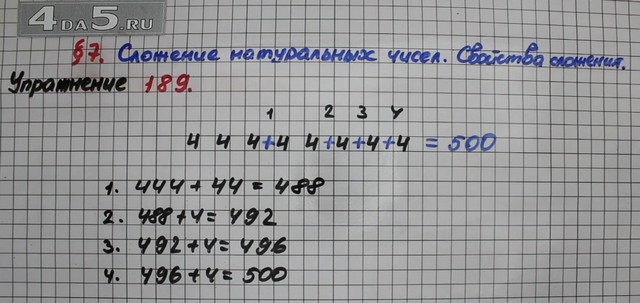 4 да 5.RU
§7. Сложение натуральных чисел. Свойства сложения.
Упражнение 189.
1 2 3 4
4 4 4+4 4+4+4+4 = 500
1. 444 + 44 = 488
2. 488+4= 492
3. 492+4= 496
4. 496+4= 500